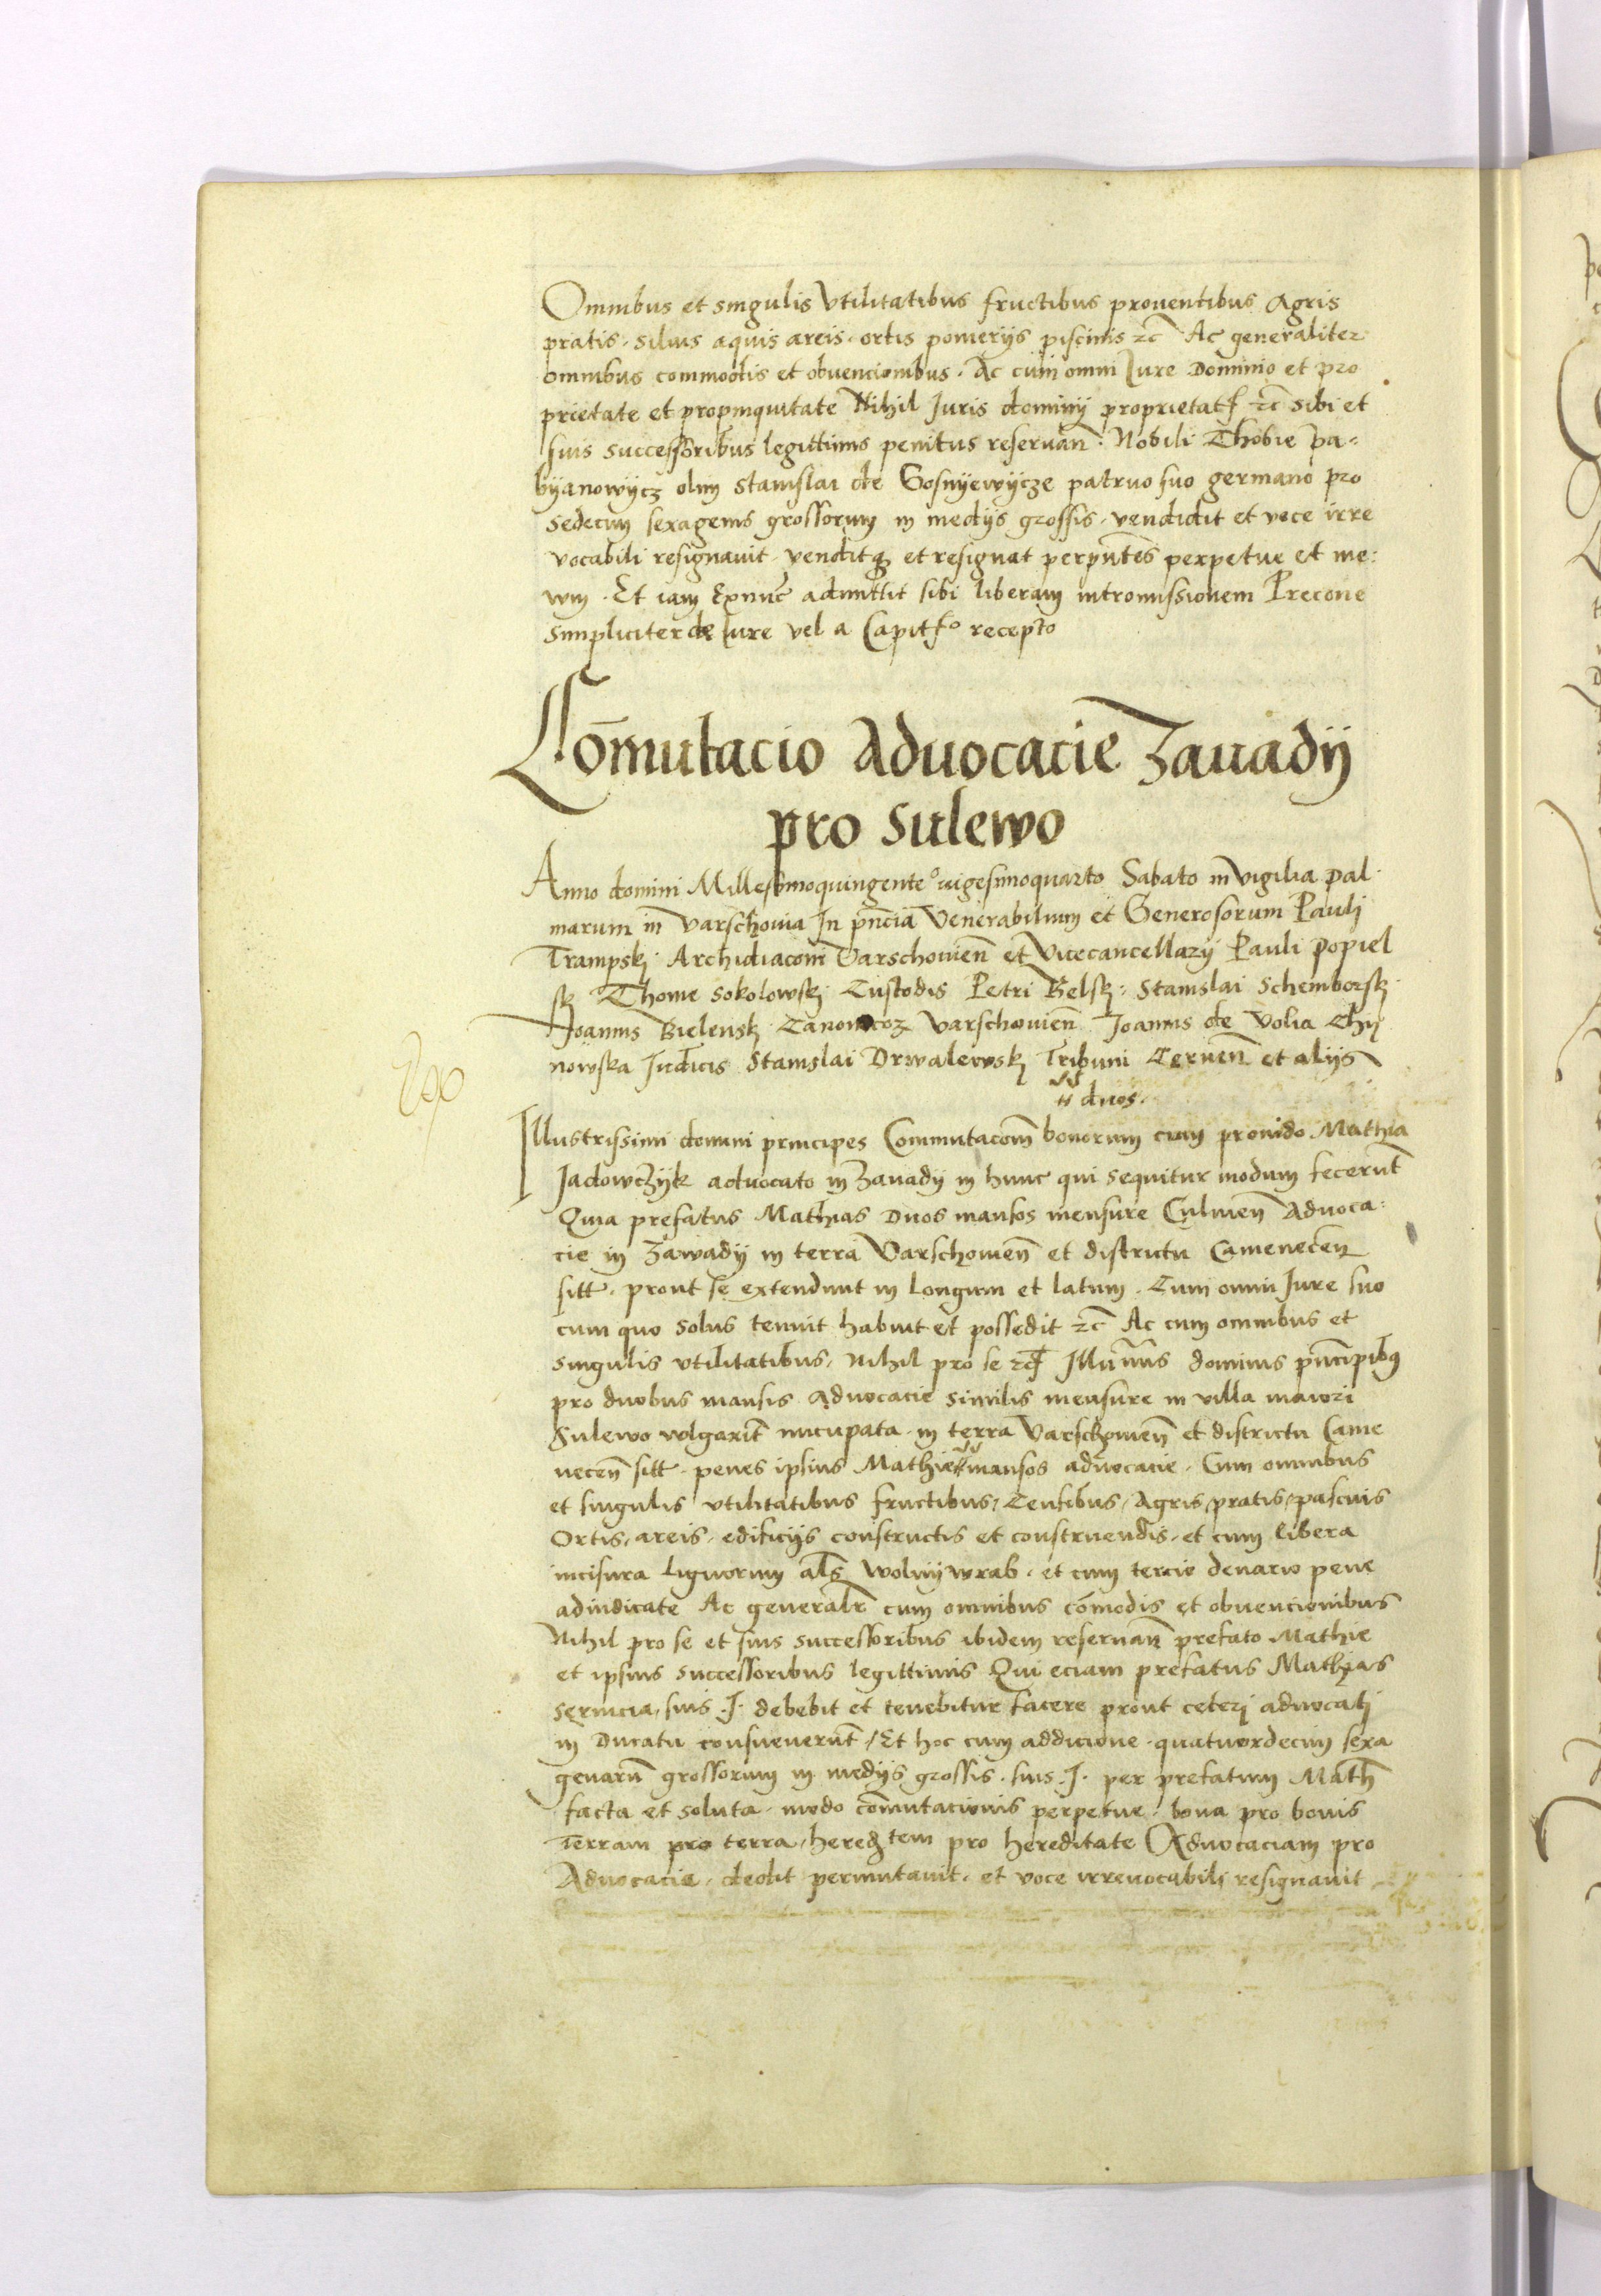 Omnibus et singulis Vtilitatibus fructibus prouentibus Agris
pratis. siluis aquis areis. ortis pomeriis piscinis rc̄ Ac generaliter
omnibus commodis et obuencionibus. Ac cum omni Jure Dominio et pro
prietate et propinquitate Nihil Juris dominij proprietatꝭ rc̄ sibi et
suis successoribus legittimis penitus reseruan̄: Nobili Thobie pa-
byanowycz olim stanislai de Gosnyewycze patruo suo germano pro
sedecim sexagenis grossorum in medijs grossis. vendidit et voce irre
vocabili resignauit venditqꝫ et resignat perpn̄tes perpetue et me:
wm. Et iam Exnūc admittit sibi liberam intromissionem Precone
simpliciter de Jure vel a Capitꝭo recepto
Com̄utacio Aduocacie Zauadij
pro Sulewo
Anno domini Millesimoquingenteo vigesimoquarto Sabato in vigilia pal
marum in varschouia In pn̄cia Venerabilium et Generosorum Pauli
Trampskj. Archidiaconi Varschouien̄ et Vicecancellarij Pauli popiel
skj Thome Sokolowskj Custodis Petri Belskj: Stanislai Schemborskj
Joannis Bielenskj Canonicoꝝ varschouien̄ Joannis de Volia Chy
nowska Judicis Stanislai Drwalewskj Tribuni Cernen̄ et aliis
duos.
Illustrissimi domini principes Commutacōm bonorum cum prouido Mathia
Jadowczyk aduocato in Zauadij in hunc qui sequitur modum fecerūt
Quia prefatus Mathias Duos mansos mensure Culmen̄ Aduoca:
cie in Zawadij in terra Varschouien̄ et districtu Camenecen̄
sitt. prout se extendunt in longum et latum. Cum omni Jure suo
cum quo solus tenuit habuit et possedit rc̄ Ac cum omnibus et
singulis vtilitatibus. Nihil pro se rcꝭ Illu dominis pn̄cipibꝰ
pro duobus mansis aduocacie similis mensure in villa maiori
Sulewo wlgarit̄ nūcupata. in terra Varschouien̄ et districtu Came
necen̄ sitt. penes ipsius Mathie mansos aduocacie. Cum omnibus
et singulis vtilitatibus fructibus, Censibus, Agris, pratis, pascuis
Ortis, areis, edificijs constructis et construendis, et cum libera
incisura lignorum als̄ wolny wrab. et cum tercio denario pene
adiudicate Ac generalr̄ cum omnibus cōmodis et obuencionibus
Nihil pro se et suis successoribus ibidem reseruan̄ prefato Mathie
et ipsius successoribus legittimis Qui eciam prefatus Mathias
seruicia, suis .J. debebit et tenebitur facere prout ceteri aduocati
in Ducatu consueuerūt, Et hoc cum addicione quatuordecim sexa
genarū grossorum in medijs grossis. suis .J. per prefatum Math̄
facta et soluta. modo cōmutacionis perpetue, bona pro bonis
Terram pro terra, heredꝫtem pro hereditate Aduocaciam pro
Aduocacia. dedit permutauit. et voce irreuocabili resignauit